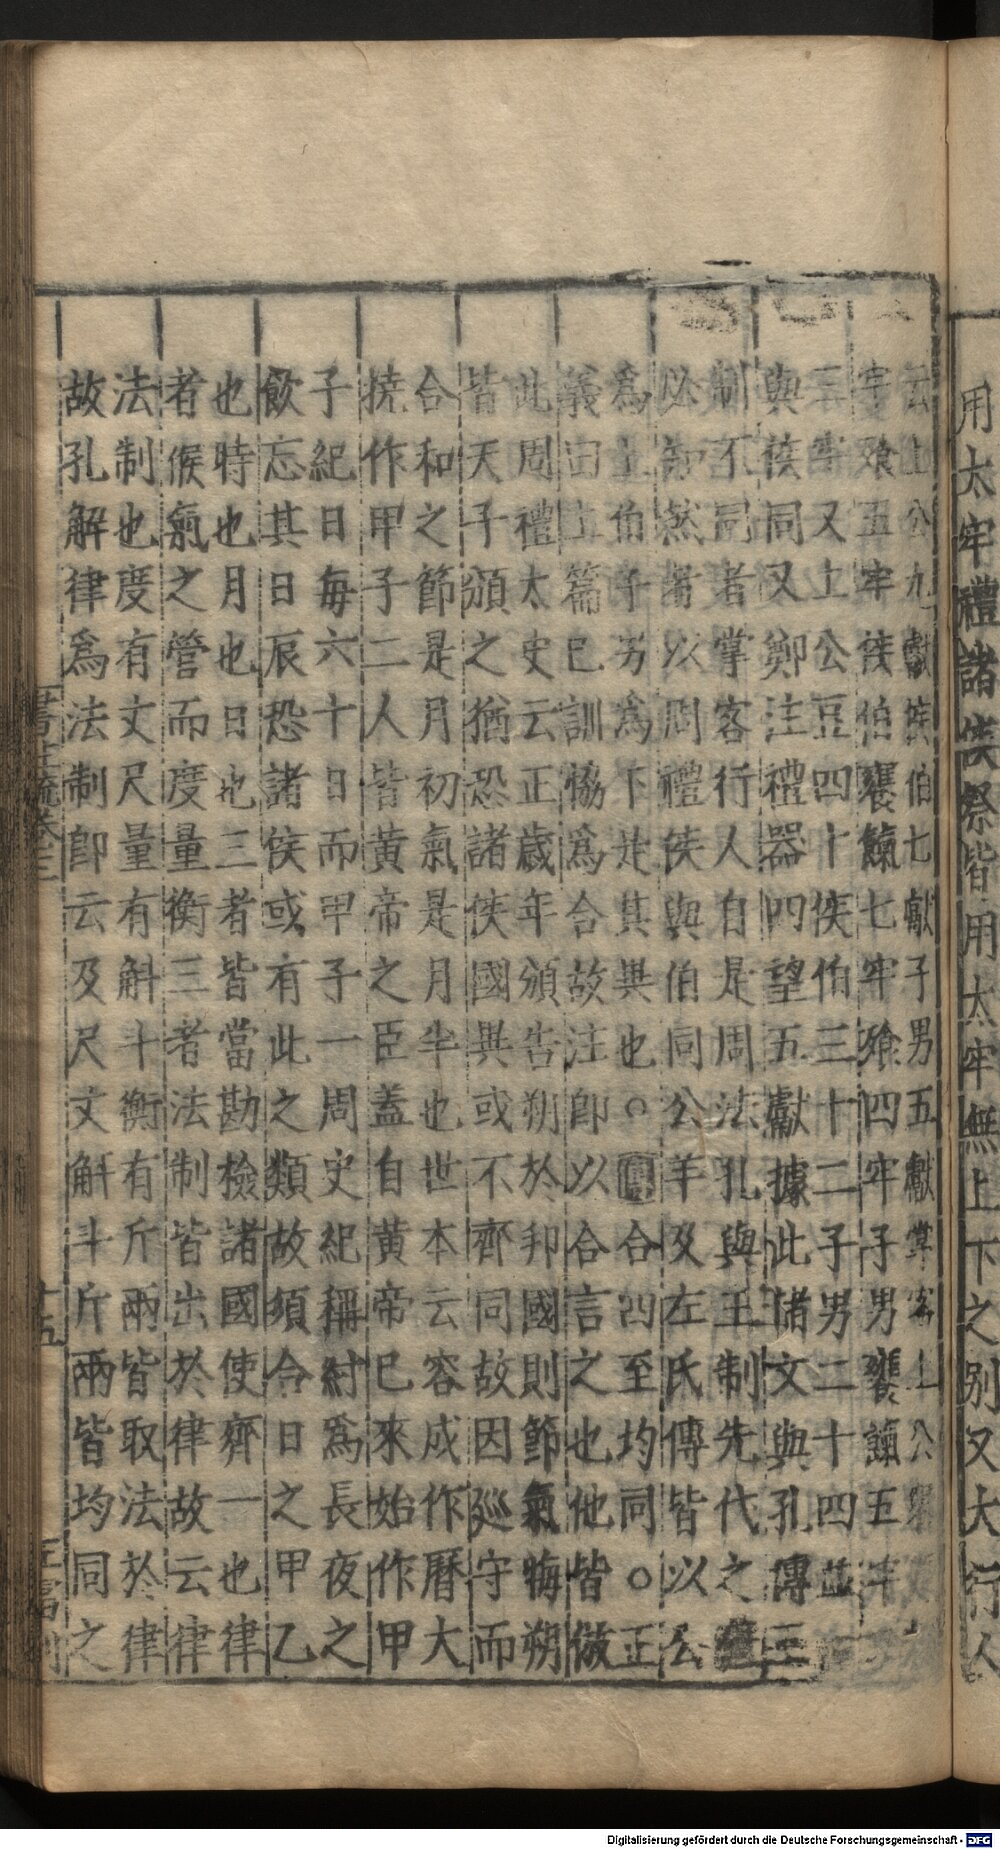 用太牢禮諸侯祭皆用太牢無上下之別又大行人
云上公九獻侯伯七獻子男五獻掌客上公
牢飱五牢侯伯饔餼七牢飱四牢子男饔餼五牢
三牢又上公豆四十侯伯三十二子男二十四並
與侯同又鄭注禮器四望五獻據此諸文與孔傳王
制不同者掌客行人自是周法孔與王制先代之禮
必知然者以周禮侯與伯同公羊及左氏傳皆以公
爲上伯子男爲下是其異也○合四至均同○正
義曰上篇已訓協爲合故注卽以合言之也他皆倣
此周禮太史云正歲年頒告朔於邦國則節氣晦朔
皆天子頒之猶恐諸侯國異或不齊同故因廵守而
合和之節是月初氣是月半也世本云容成作曆大
撓作甲子二人皆黄帝之臣蓋自黄帝已來始作甲
子紀日每六十日而甲子一周史紀稱紂爲長夜之
飲忘其日辰恐諸侯或有此之類故須合日之甲乙
也時也月也日也三者皆當勘檢諸國使齊一也律
者候氣之管而度量衡三者法制皆出於律故云律
法制也度有丈尺量有斛斗衡有斤兩皆取法於律
故孔解律爲法制卽云及尺丈斛斗斤兩皆均同之
書註疏卷三 十五 王富刊
Digitalisierung gefördert durch die Deutsche Forschungsgemeinschaft - DFG